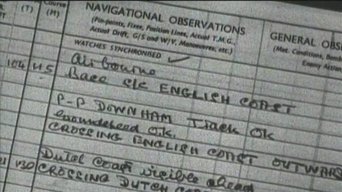 (T)
NAVIGATIONAL OBSERVATIONS
(Pin-points, Fixes, Position Lines, Actual T.M.G.,
Actual Drift, G/S and W/V, Manoeuvres, etc.)
GENERAL OBS
(Met. Conditions, Bomb
Enemy Action
WATCHES SYNCHRONISED ✓
Airborne
104 45 Base c/c ENGLISH COAST
P-P DOWNHAM Track OK
Groundspeed O.K.
CROSSING ENGLISH COAST OUTWARD
Dutch Coast visible ahead
130 CROSSING DUTCH